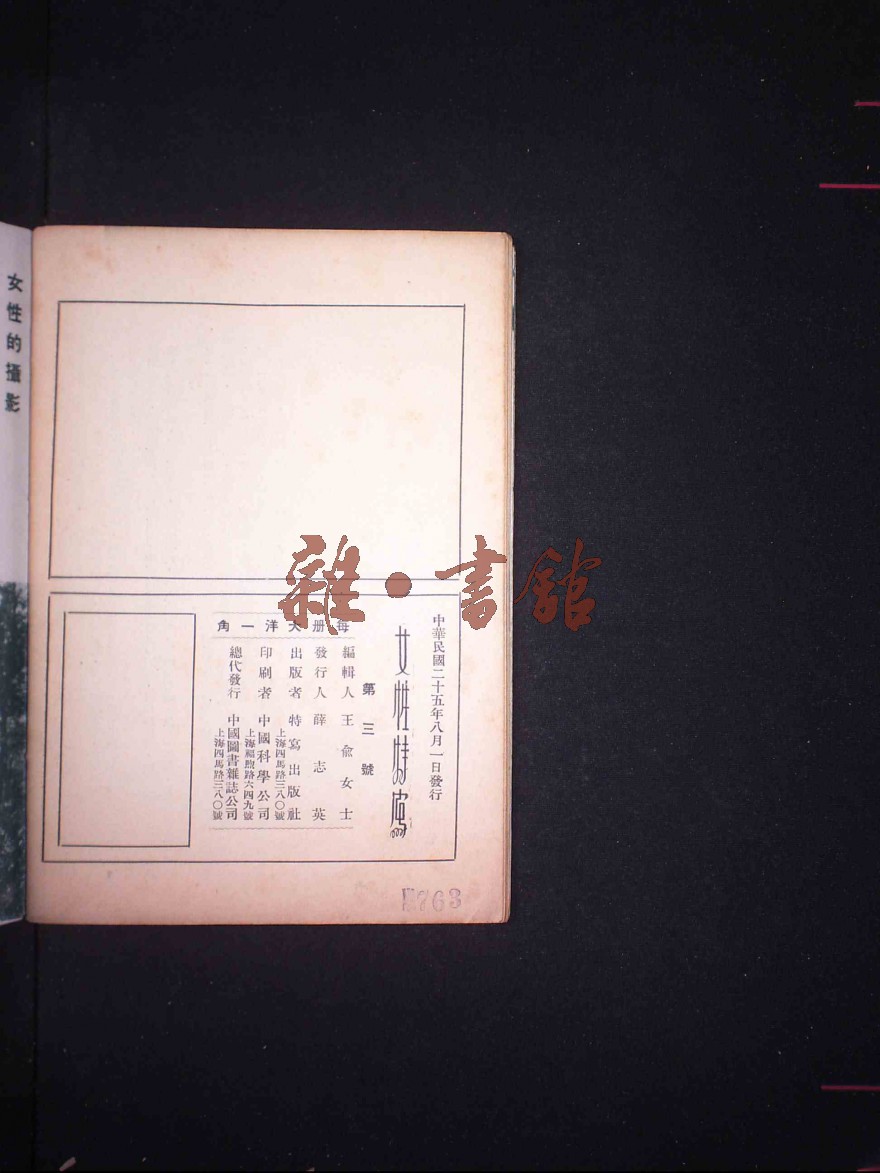 中華民國二十五年八月一日發行
女性特寫
第三號
每册大洋一角
編輯人 王兪女士
發行人 薛志英
出版者 特寫出版社
上海四馬路三八〇號
印刷者 中國科學公司
上海福煦路六四九號
總代發行 中國圖書雜誌公司
上海四馬路三八〇號
女性的攝影
雜·書館
763